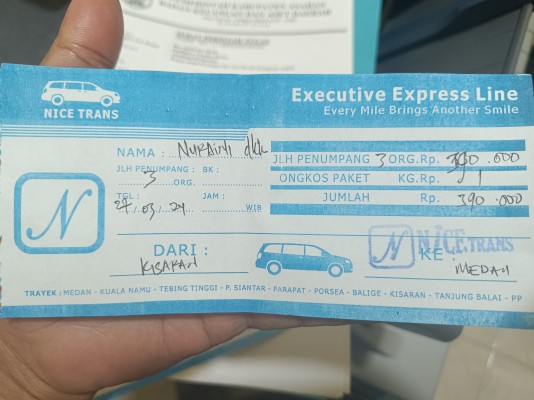 NICE TRANS
Executive Express Line
Every Mile Brings Another Smile
NAMA : Nuraini dkk
JLH PENUMPANG : BK :
3 ORG.
TGL : JAM :
27.03.24 WIB
JLH PENUMPANG 3 ORG. Rp. 390.000
ONGKOS PAKET KG. Rp.
JUMLAH Rp. 390.000
N
DARI :
KISARAN
N NICE TRANS
KE :
MEDAN
TRAYEK : MEDAN - KUALA NAMU - TEBING TINGGI - P. SIANTAR - PARAPAT - PORSEA - BALIGE - KISARAN - TANJUNG BALAI - PP